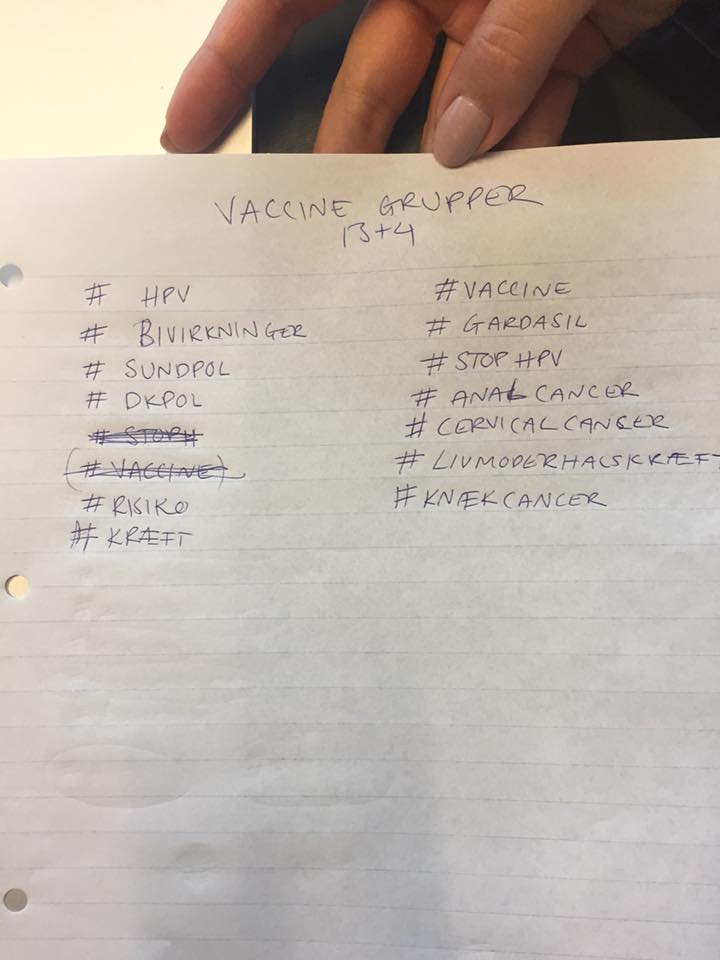 VACCINE GRUPPER
13+4
# HPV
# BIVIRKNINGER
# SUNDPOL
# DKPOL
# STOPH
(# VACCINE)
# RISIKO
# KRÆFT
# VACCINE
# GARDASIL
# STOP HPV
# ANAL CANCER
# CERVICAL CANCER
# LIVMODERHALSKRÆFT
# KNÆK CANCER